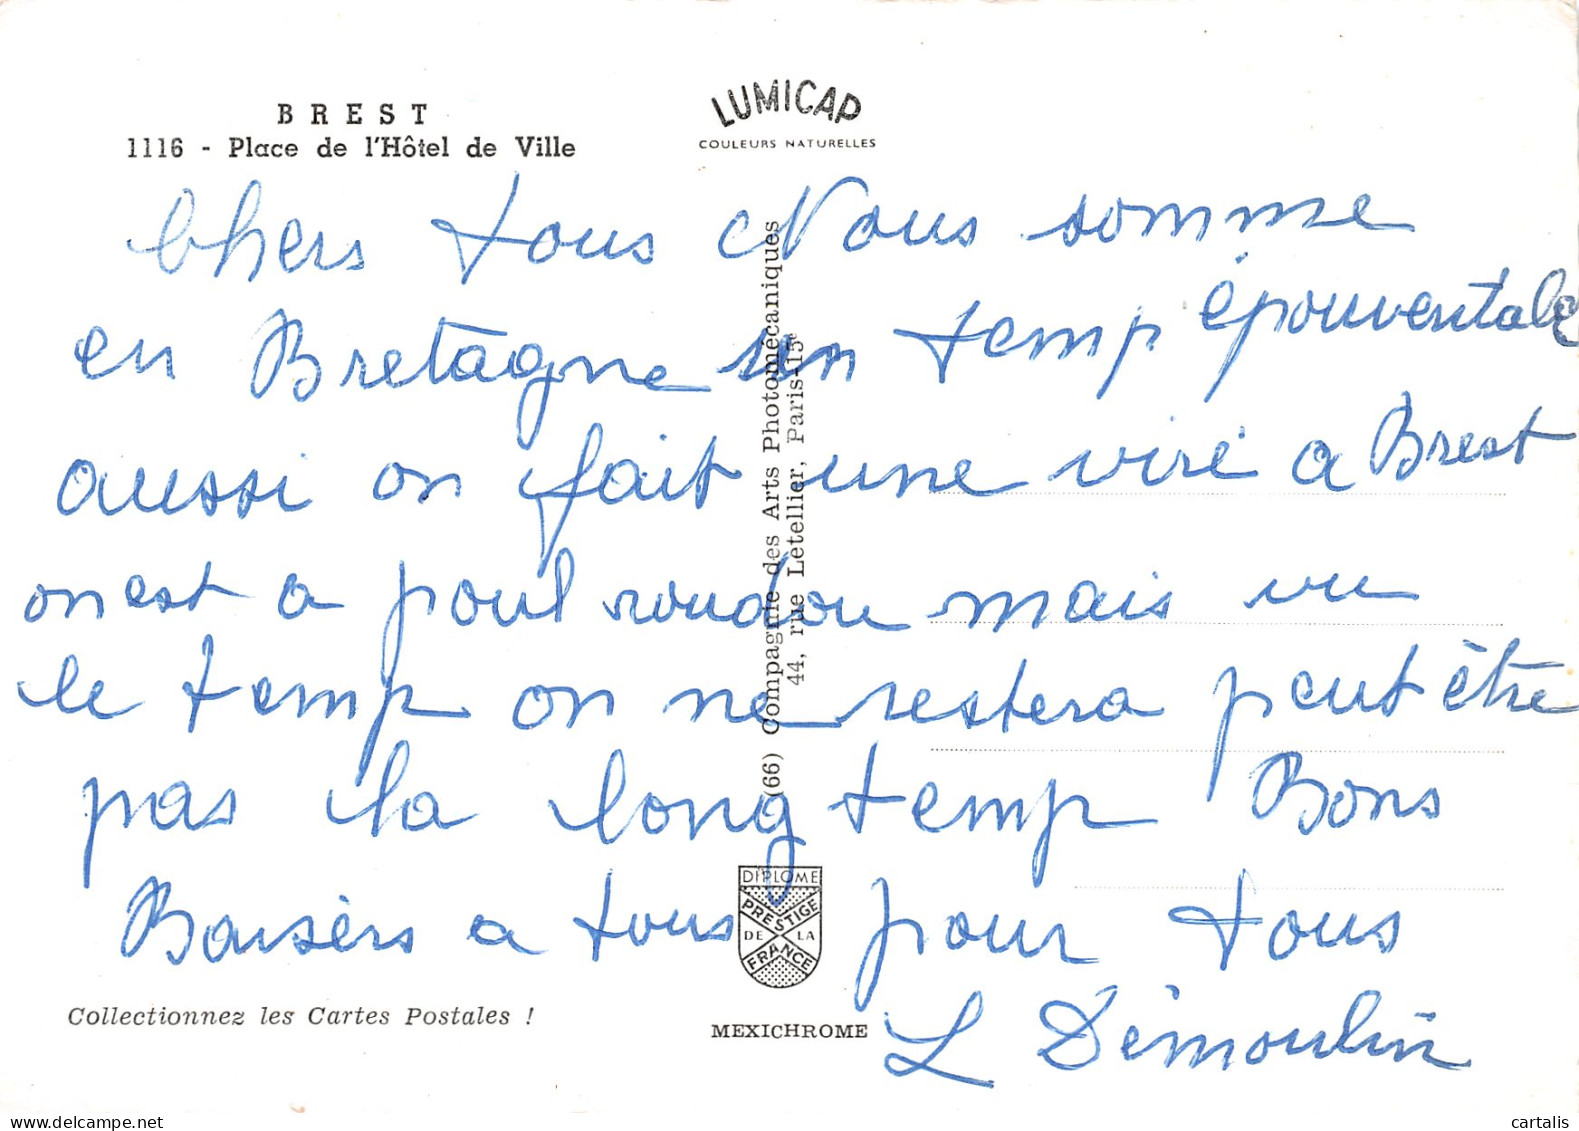 BREST
1116 - Place de l'Hôtel de Ville
LUMICAP
COULEURS NATURELLES
Chers tous Nous somme
en Bretagne un temp épouventable
aussi on fait une viré a Brest
on est a poul roudou mais vu
le temp on ne restera peut être
pas la long temp Bons
Baisèrs a tous pour tous
L Démoulin
(66) Compagnie des Arts Photomécaniques
44, rue Letellier, Paris-15e
DIPLOME
PRESTIGE
DE LA
FRANCE
Collectionnez les Cartes Postales !
MEXICHROME
www.delcampe.net
cartalis